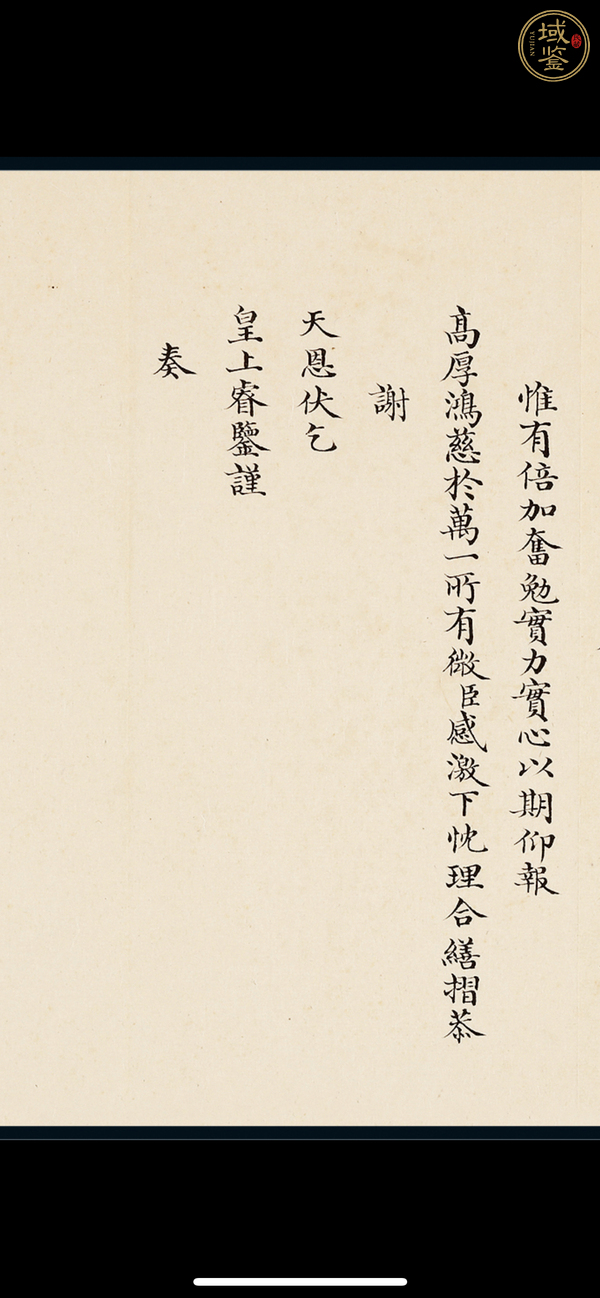 域鉴
YUJIAN
惟有倍加奮勉實力實心以期仰報
高厚鴻慈於萬一所有微臣感激下忱理合繕摺恭
謝
天恩伏乞
皇上睿鑒謹
奏